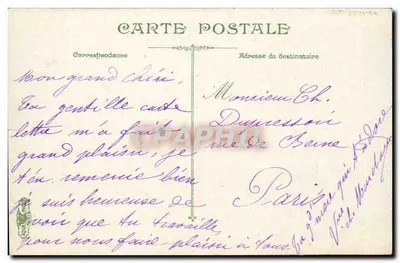 CARTE POSTALE
Correspondance
Adresse du destinataire
Mon grand chéri,
Ta gentille carte
lettre m'a fait
grand plaisir, je
t'en remercie bien
je suis heureuse de
voir que tu travailles
pour nous faire plaisir à tous.
Monsieur Ch.
Dupression
rue de Berne
Paris
Ta gd mère qui t'adore